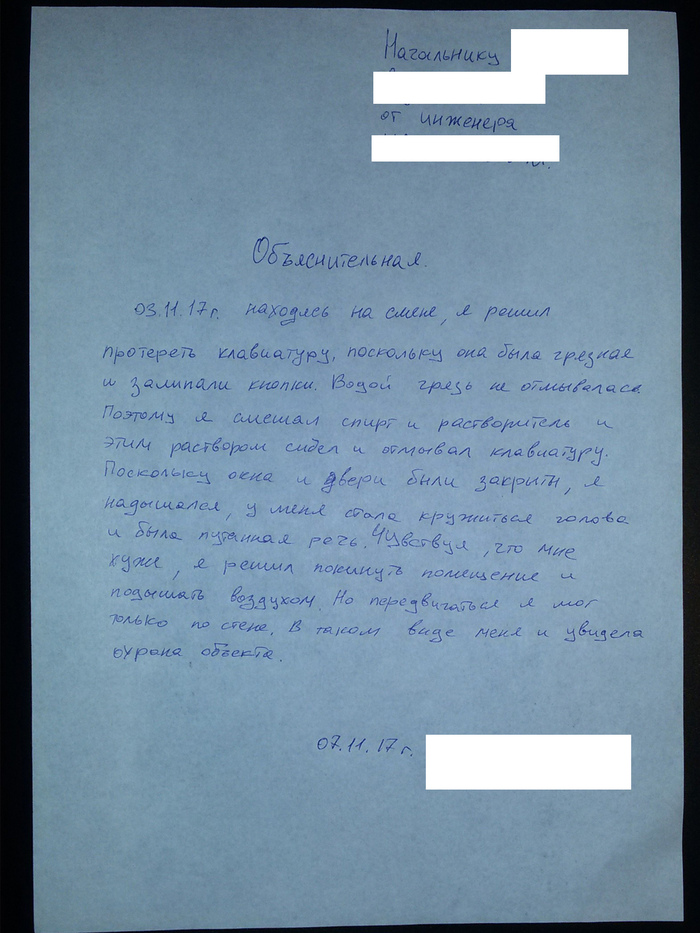 Начальнику
от инженера
Объяснительная.
03.11.17г. находясь на смене, я решил
протереть клавиатуру, поскольку она была грязная
и залипали кнопки. Водой грязь не отмывалась
Поэтому я смешал спирт и растворитель и
этим раствором сидел и отмывал клавиатуру.
Поскольку окна и двери были закрыты, я
надышался, у меня стала кружиться голова
и была путанная речь. Чувствуя, что мне
хуже, я решил покинуть помещение и
подышать воздухом. Но передвигаться я мог
только по стене. В таком виде меня и увидела
охрана объекта.
07.11.17г.